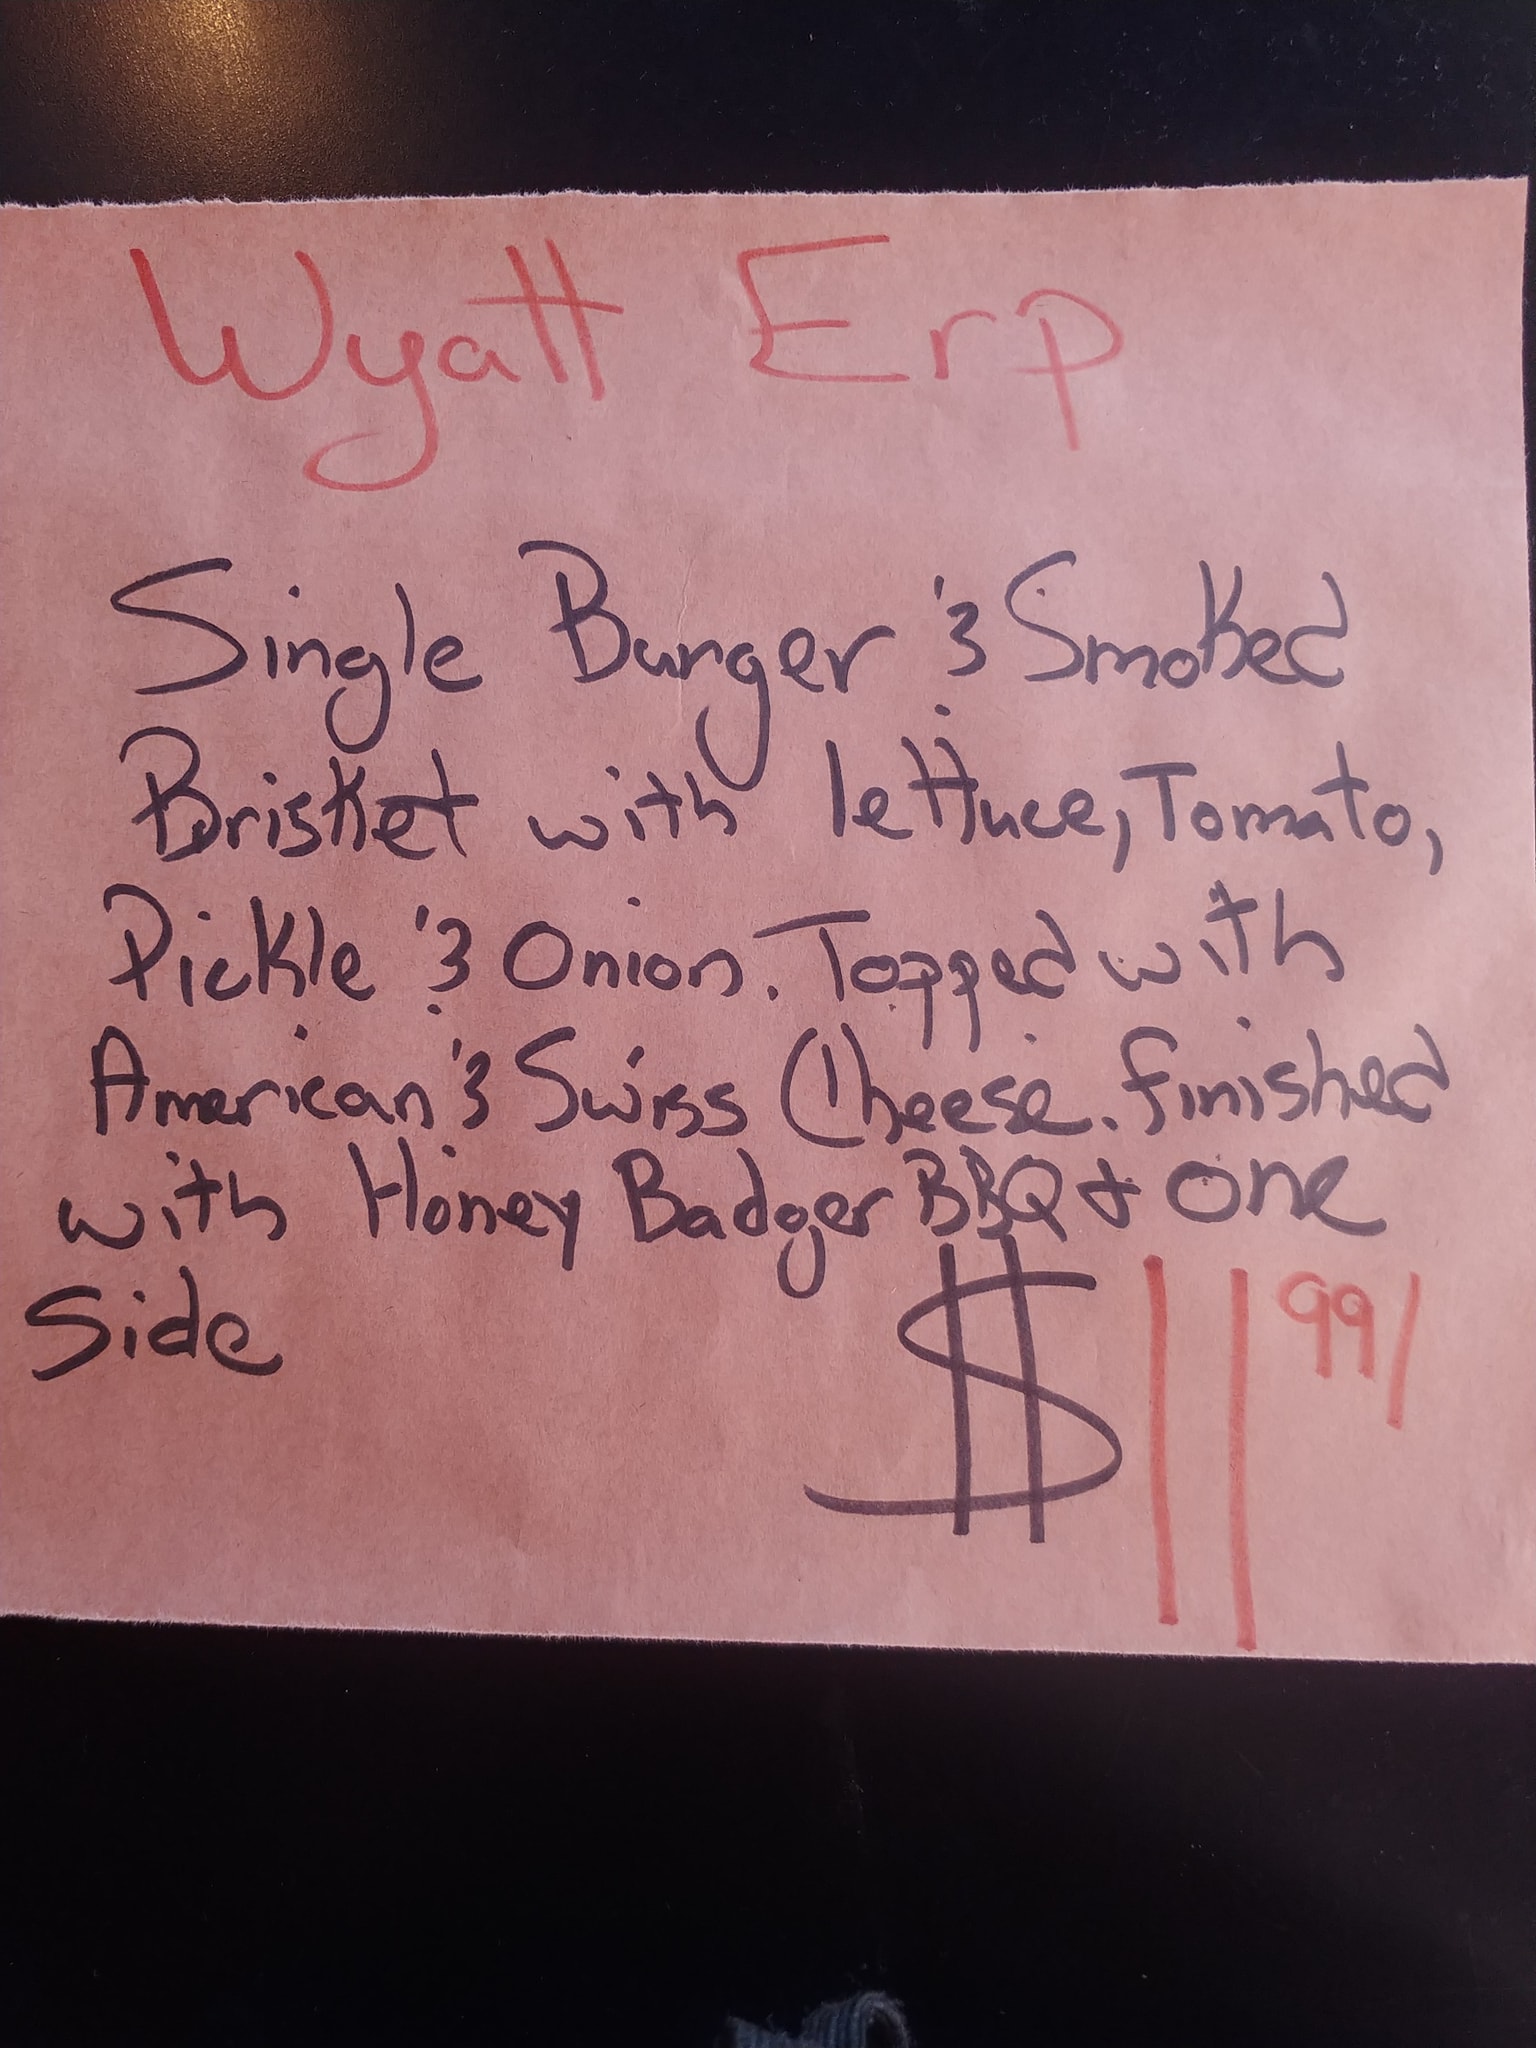 Wyatt Erp
Single Burger & Smoked
Brisket with lettuce, Tomato,
Pickle & Onion. Topped with
American & Swiss Cheese. finished
with Honey Badger BBQ & one
Side
$11 99/